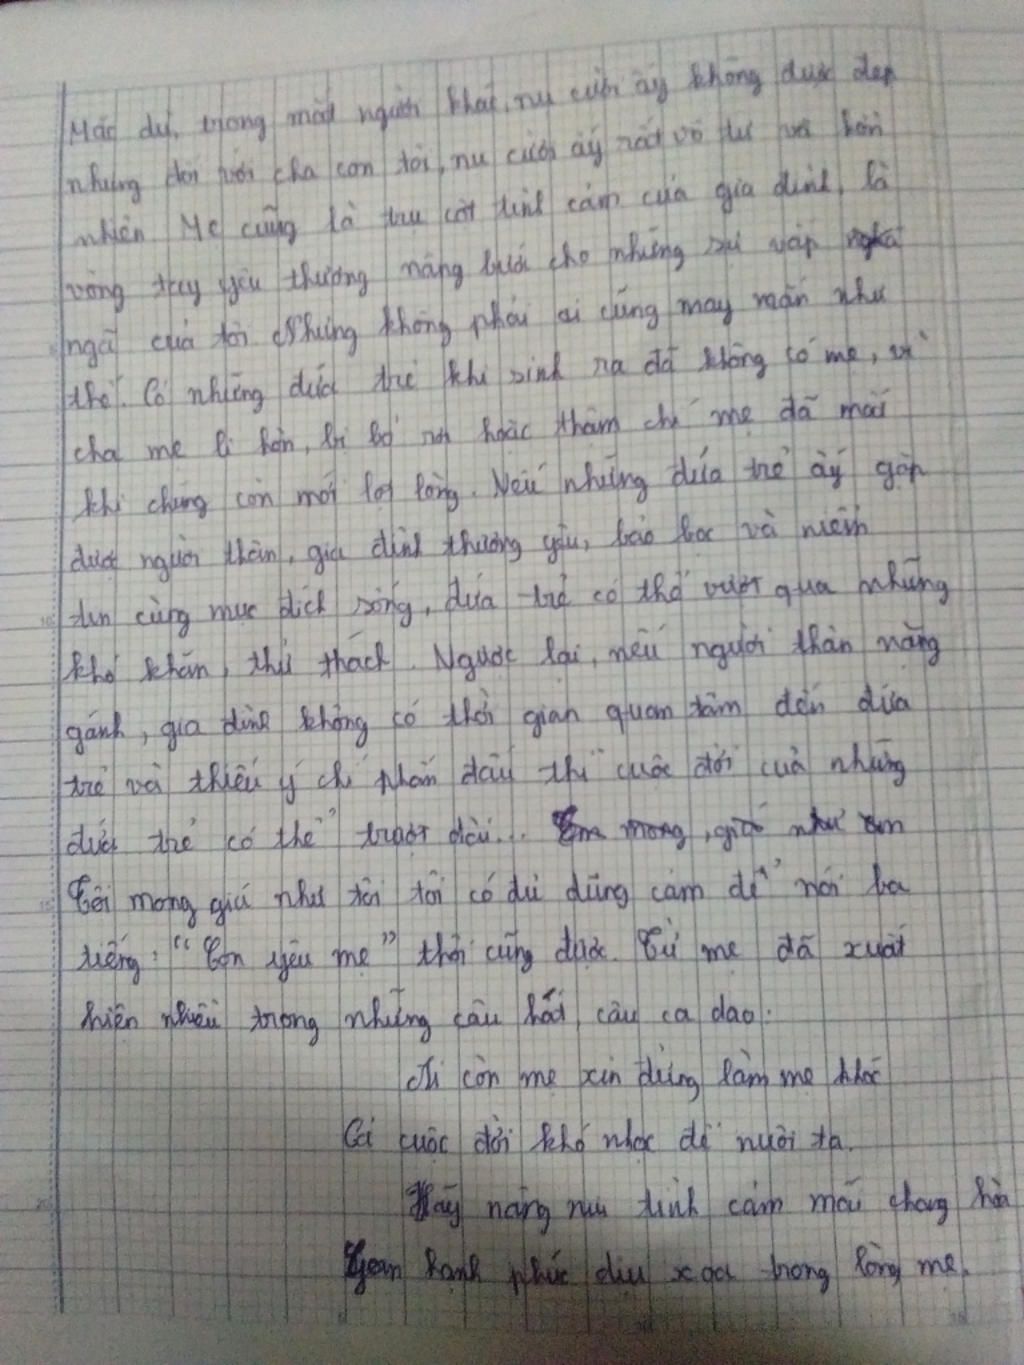 Mặc dù, trong mắt người khác, nụ cười ấy không được đẹp
nhưng đối với cha con tôi, nụ cười ấy rất vô tư và hồn
nhiên. Mẹ cũng là trụ cột tình cảm của gia đình, là
vòng tay yêu thương nâng bước cho những sự vấp
ngã của tôi. Nhưng không phải ai cũng may mắn như
thế. Có những đứa trẻ khi sinh ra đã không có mẹ, vì
cha mẹ li hôn, bị bỏ rơi hoặc thậm chí mẹ đã mất
khi chúng còn mới lọt lòng. Nếu những đứa trẻ ấy gặp
được người thân, gia đình thương yêu, bảo bọc và niềm
tin cùng mục đích sống, đứa trẻ có thể vượt qua những
khó khăn, thử thách. Ngược lại, nếu người thân nặng
gánh, gia đình không có thời gian quan tâm đến đứa
trẻ và thiếu ý chí phấn đấu thì cuộc đời của những
đứa trẻ có thể "trượt dài"...
Tôi mong giá như tôi tôi có đủ dũng cảm để nói ba
tiếng: "Con yêu mẹ" thôi cũng được. Từ mẹ đã xuất
hiện nhiều trong những câu hát, câu ca dao:
Ai còn mẹ xin đừng làm mẹ khóc
Cả cuộc đời khó nhọc để nuôi ta.
Hãy nâng niu tình cảm mãi chang hòa
hạnh phúc dịu xoa trong lòng mẹ.